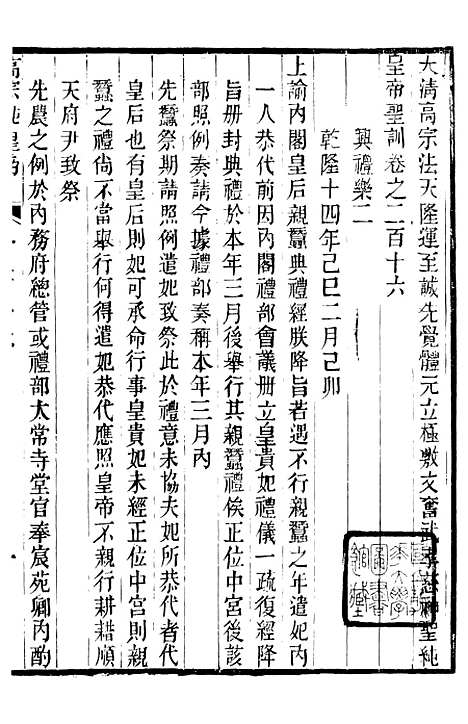 大清高宗法天隆運至誠先覺體元立極敷文奮武孝慈神聖純
皇帝聖訓卷之二百十六
興禮樂二
乾隆十四年己巳二月己卯
上諭內閣皇后親蠶典禮經朕降旨若遇不行親蠶之年遣妃內
一人恭代前因內閣禮部會議册立皇貴妃禮儀一疏復經降
旨册封典禮於本年三月後舉行其親蠶禮俟正位中宮後該
部照例奏請今據禮部奏稱本年三月內
先蠶祭期請照例遣妃致祭此於禮意未協夫妃所恭代者代
皇后也有皇后則妃可承命行事皇貴妃未經正位中宮則親
蠶之禮尚不當舉行何得遣妃恭代應照皇帝不親行耕耤順
天府尹致祭
先農之例於內務府總管或禮部太常寺堂官奉宸苑卿內酌
高宗純皇帝